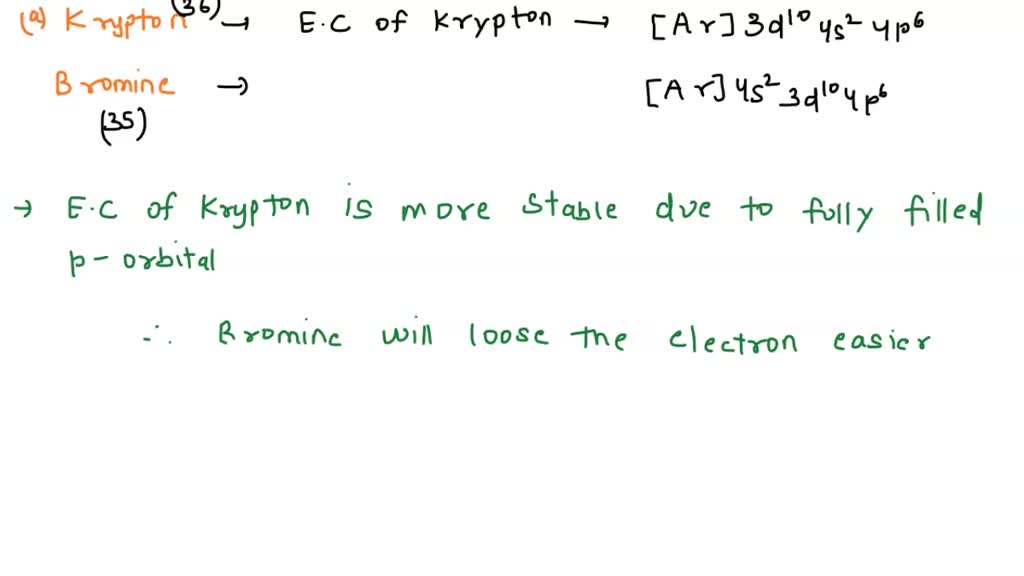 (a) Krypton (36) → E.C of Krypton → [Ar] 3d¹⁰ 4s² 4p⁶
Bromine → [Ar] 4s² 3d¹⁰ 4p⁶
(35)
→ E.C of Krypton is more stable due to fully filled
p-orbital
∴ Bromine will loose the electron easier